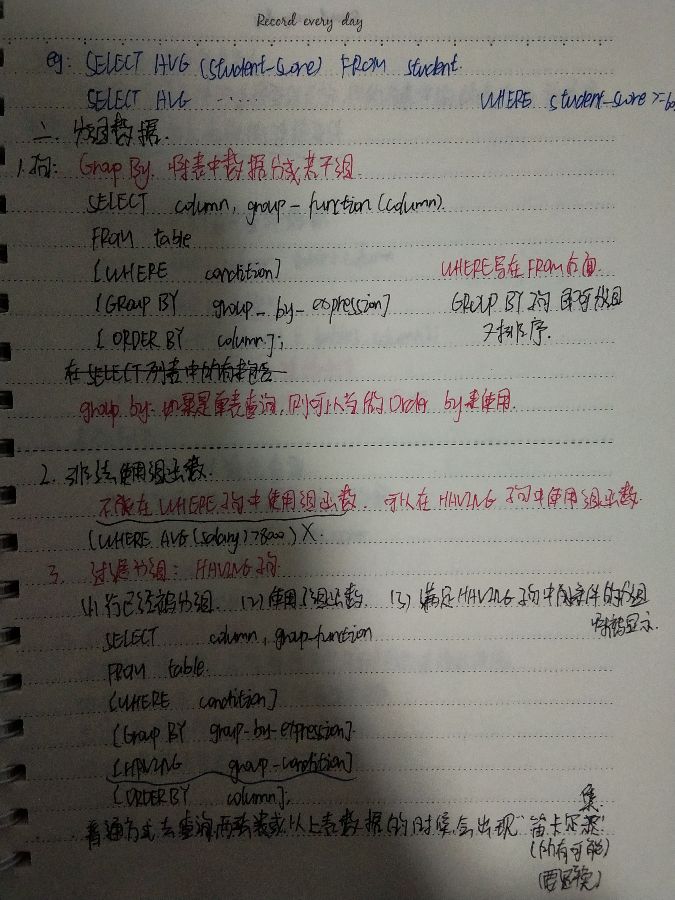 Record every day
eg: SELECT AVG (student-score) FROM student.
SELECT AVG ...... WHERE student-score >=60
二. 分组数据.
1.子句: Group By. 将表中数据分成若干组.
SELECT column, group-function (column)
FROM table
[WHERE condition] WHERE写在FROM后面.
[GROUP BY group_by-expression] GROUP BY 子句 即可分组
[ORDER BY column]; 又排序.
在SELECT列表中的有
group by: 如果是单表查询, 则可以当做Order by来使用.
2. 非法使用组函数.
不能在WHERE子句中使用组函数. 可以在HAVING子句中使用组函数.
(WHERE AVG(salary)>8000) X.
3. 过滤分组: HAVING子句.
(1) 行已经被分组. (2) 使用了组函数. (3) 满足HAVING子句中条件的分组
将被显示.
SELECT column, group-function
FROM table.
[WHERE condition]
[Group BY group-by-expression].
[HAVING group-condition]
[ORDER BY column];
普通方式去查询两张表或以上表数据的时候会出现"笛卡尔积"集.
(所有可能)